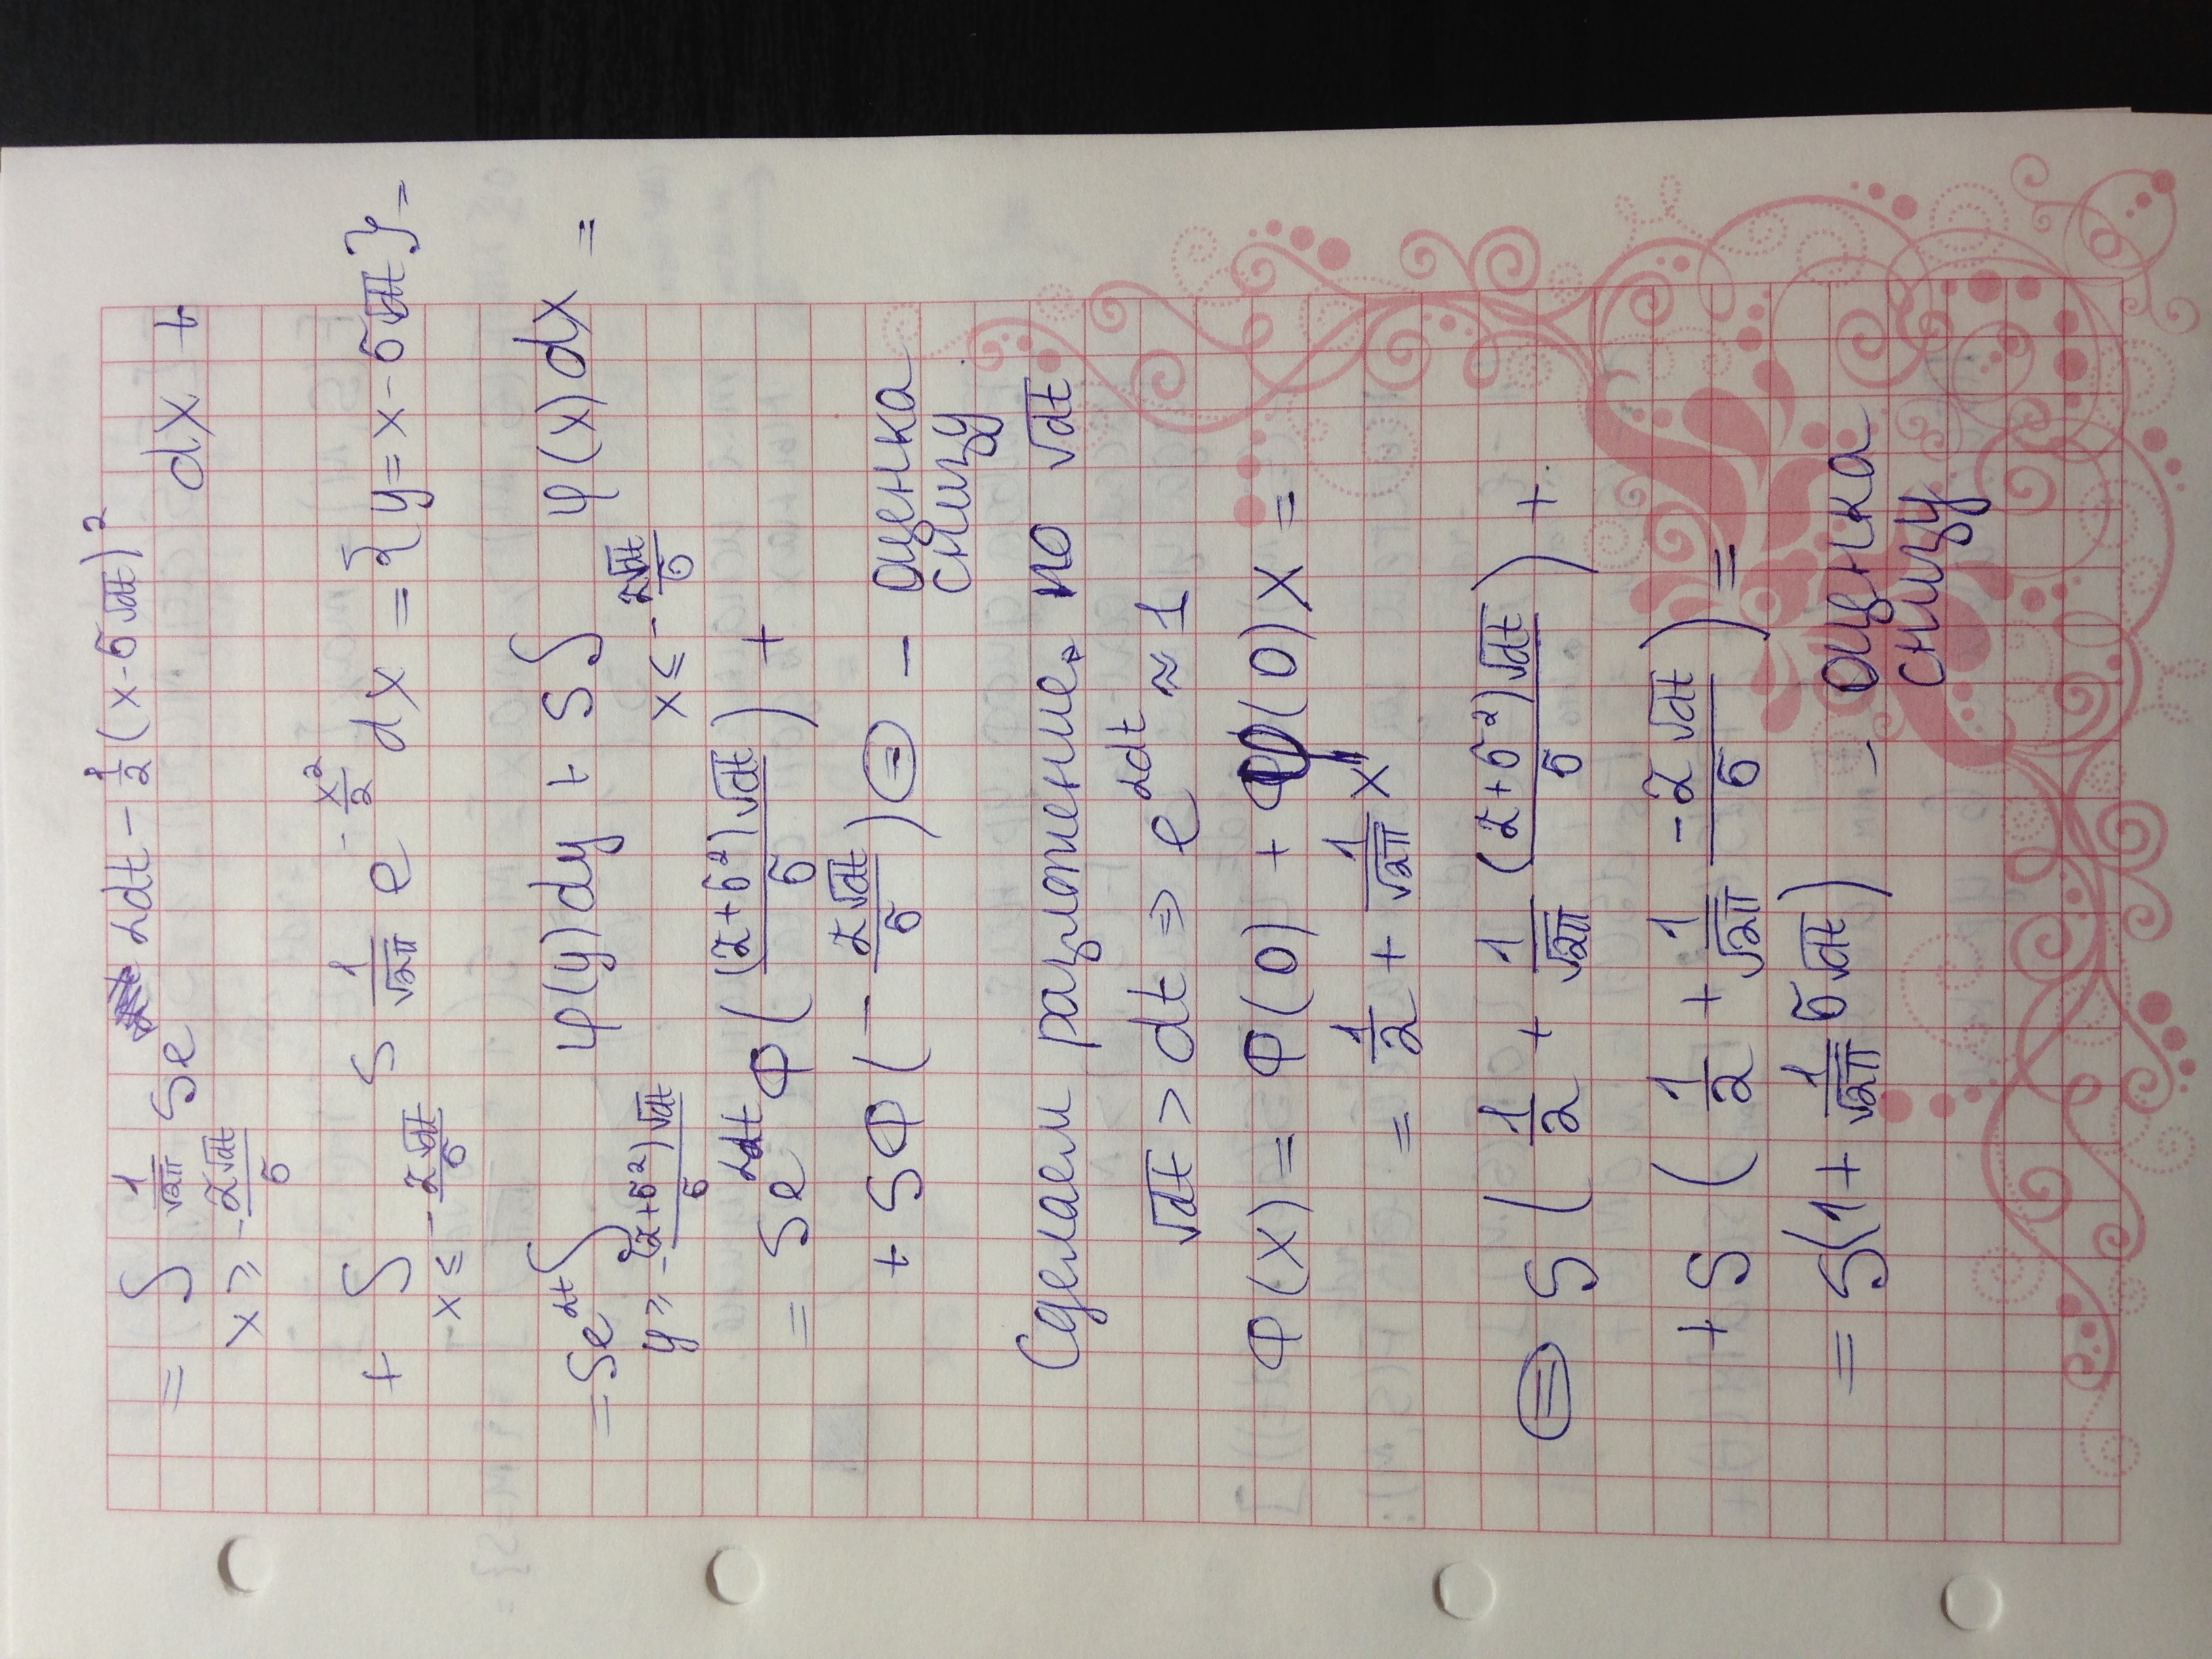 = ∫ 1/√2π S e^(αdt - 1/2 (x-σ√dt)²) dx +
x ⩾ - α̃√dt/σ
+ ∫ S 1/√2π e^(-x²/2) dx = {y = x - σ√dt} =
x ⩽ - α̃√dt/σ
= Se^(αt) ∫ φ(y)dy + S ∫ φ(x)dx =
y ⩾ - (α̃+σ²)√dt/σ x ⩽ - α̃√dt/σ
= Se^(αdt) Φ((α̃+σ²)√dt/σ) +
+ SΦ(- α̃√dt/σ) ⊜ - оценка
снизу
Сделаем разложение по √dt
√dt > dt ⇒ e^(αdt) ≈ 1
Φ(x) = Φ(0) + φ(0)x =
= 1/2 + 1/√2π x
⊜ S(1/2 + 1/√2π (α̃+σ²)√dt/σ) +
+ S(1/2 + 1/√2π -α̃√dt/σ) =
= S(1 + 1/√2π σ√dt) - оценка
снизу